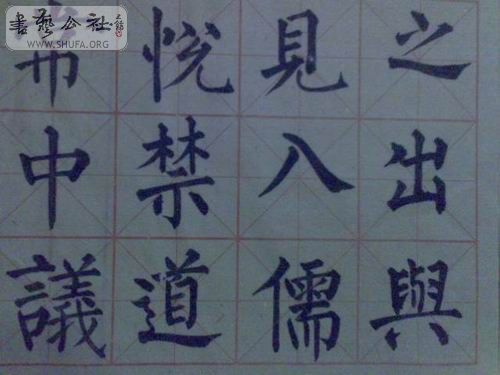 書藝公社
WWW.SHUFA.ORG
之出與
見八儒
悅禁道
中議